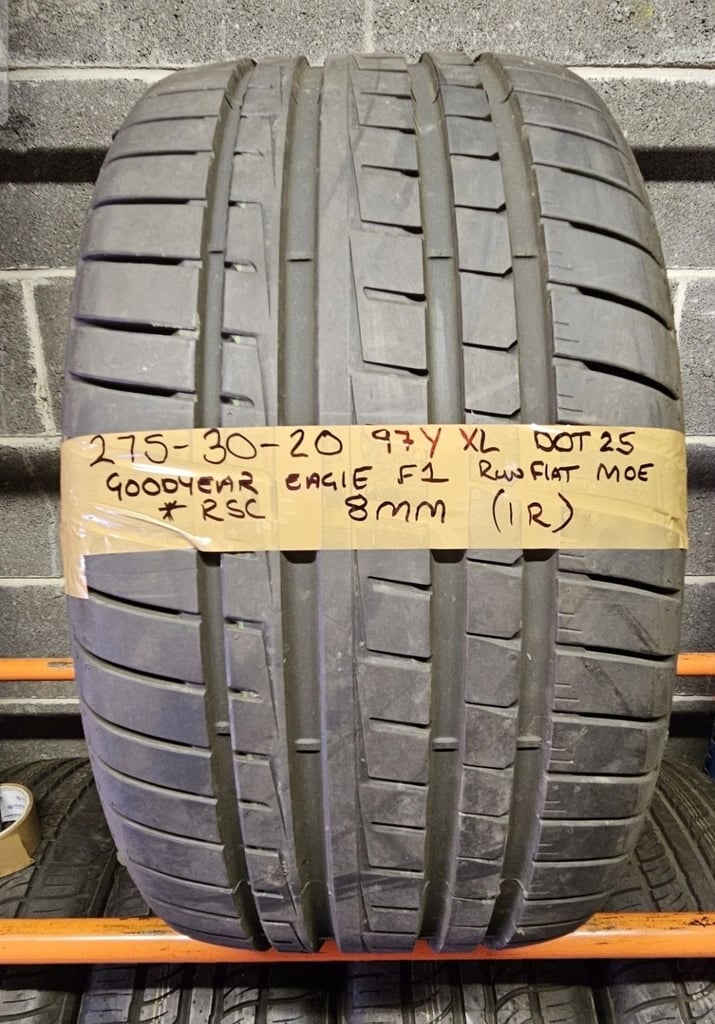 275-30-20 97Y XL DOT 25
GOODYEAR EAGLE F1 RUNFLAT MOE
* RSC 8MM (1R)